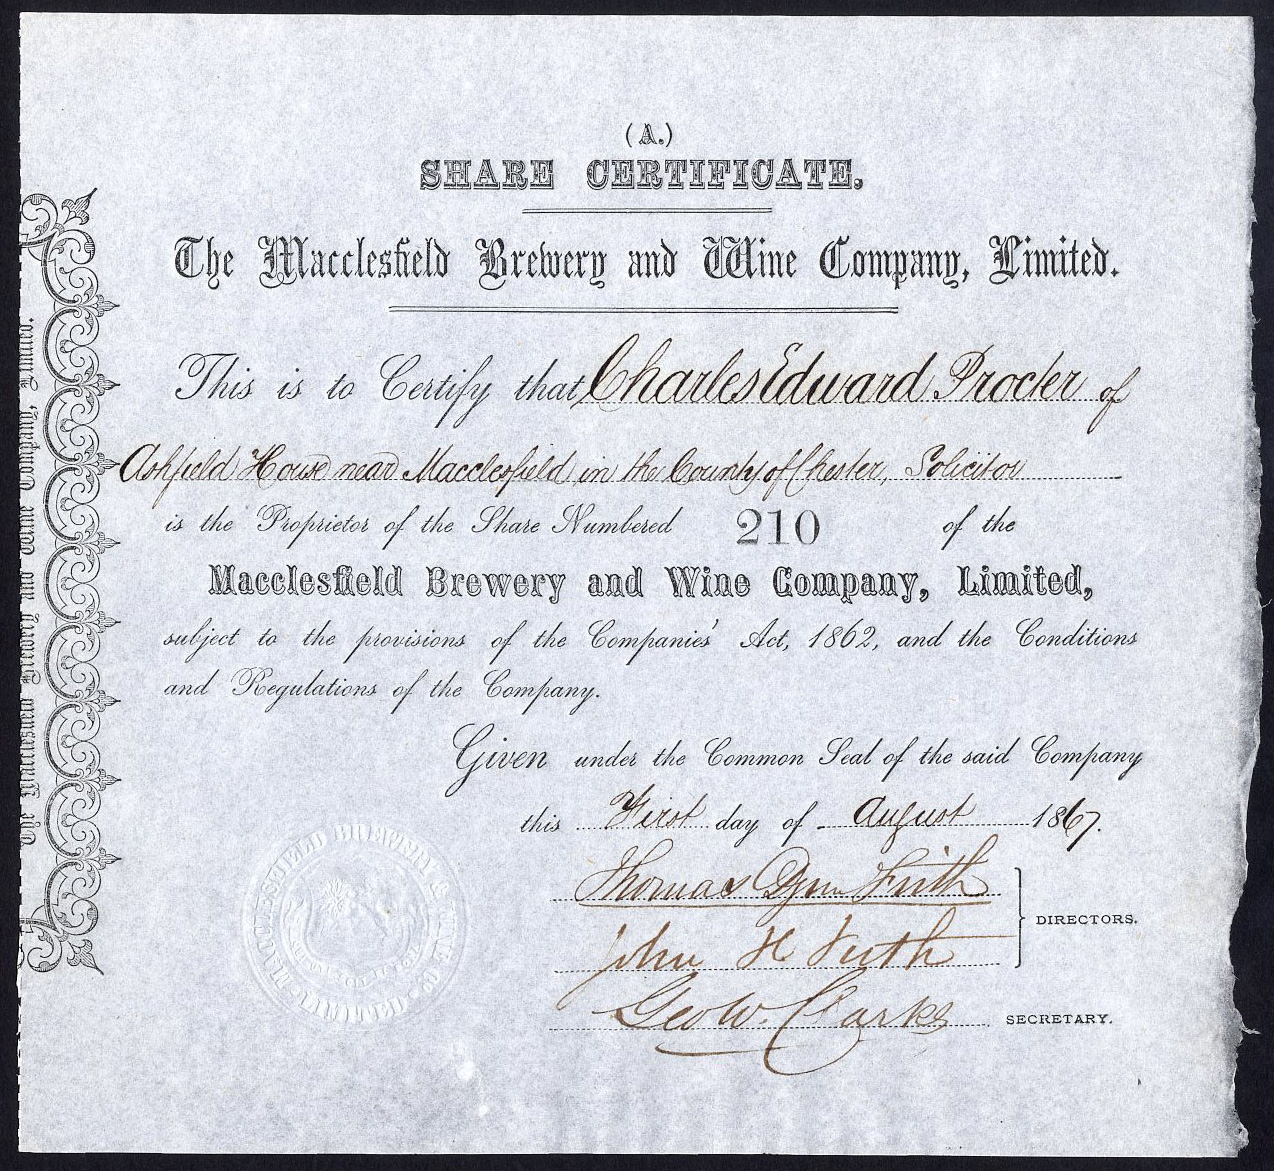 (A.)
SHARE CERTIFICATE.
The Macclesfield Brewery and Wine Company, Limited.
This is to Certify that Charles Edward Procter of
Ashfield House near Macclesfield in the County of Chester, Solicitor
is the Proprietor of the Share Numbered 210 of the
Macclesfield Brewery and Wine Company, Limited,
subject to the provisions of the Companies' Act, 1862, and the Conditions
and Regulations of the Company.
Given under the Common Seal of the said Company
this First day of August 1867.
Thomas Firth
John H Firth
DIRECTORS.
Geo W. Clarke
SECRETARY.
The Macclesfield Brewery and Wine Company, Limited.
MACCLESFIELD BREWERY & WINE CO LIMITED